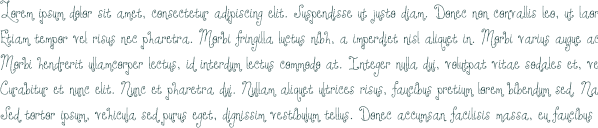 Lorem ipsum dolor sit amet, consectetur adipiscing elit. Suspendisse ut justo diam. Donec non convallis leo, ut laor
Etiam tempor vel risus nec pharetra. Morbi fringilla luctus nibh, a imperdiet nisl aliquet in. Morbi varius augue ac
Morbi hendrerit ullamcorper lectus, id interdum lectus commodo at. Integer nulla dui, volutpat vitae sodales et, ve
Curabitur et nunc elit. Nunc et pharetra dui. Nullam aliquet ultrices risus, faucibus pretium lorem bibendum sed. Na
Sed tortor ipsum, vehicula sed purus eget, dignissim vestibulum tellus. Donec accumsan facilisis massa, eu faucibus